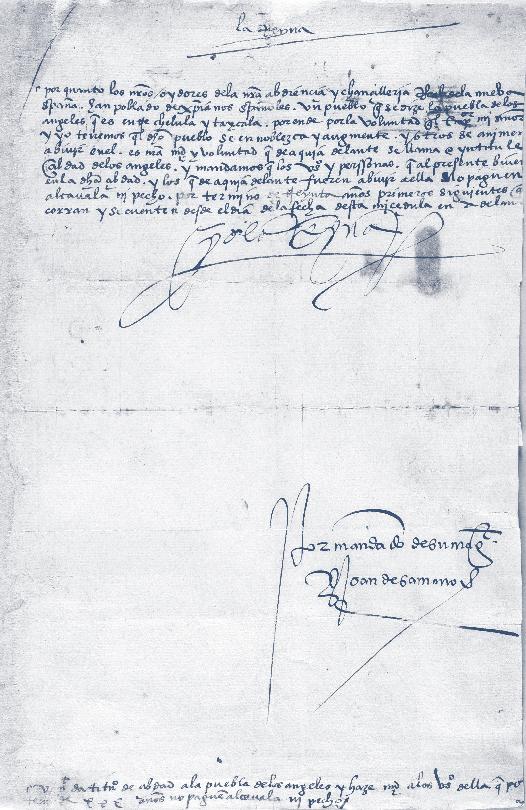 la Reyna
por quanto los nros oydores dela nra abdiencia y chancilleria Real dela nueba
spaña. han poblado de xpianos españoles. Un pueblo q se dize la puebla delos
angeles. q es entre cholula y taxcala. porende por la voluntad ql
y yo tenemos ql dho pueblo se ennoblezca y augmente. y otros se animen
a biuir enel. es nra md y voluntad q de aqui a delante se llame e yntitule
cibdad delos angeles. y mandamos q los vos y perssonas. q al presente biuen
enla dha cibdad. y los q de aqui a delante fueren a biuir a ella No paguen
alcavala ni pecho. por termino de treynta años primeros siguientes q
corran y se cuenten desde el dia dela fecha desta mi cedula en a delante
yo la Reyna
Por mandado de su mag.
Joan de samano
da titlo de cibdad ala puebla delos angeles y haze md alos vos della q por
tero de xxx años no paguen alcavala ni pecho